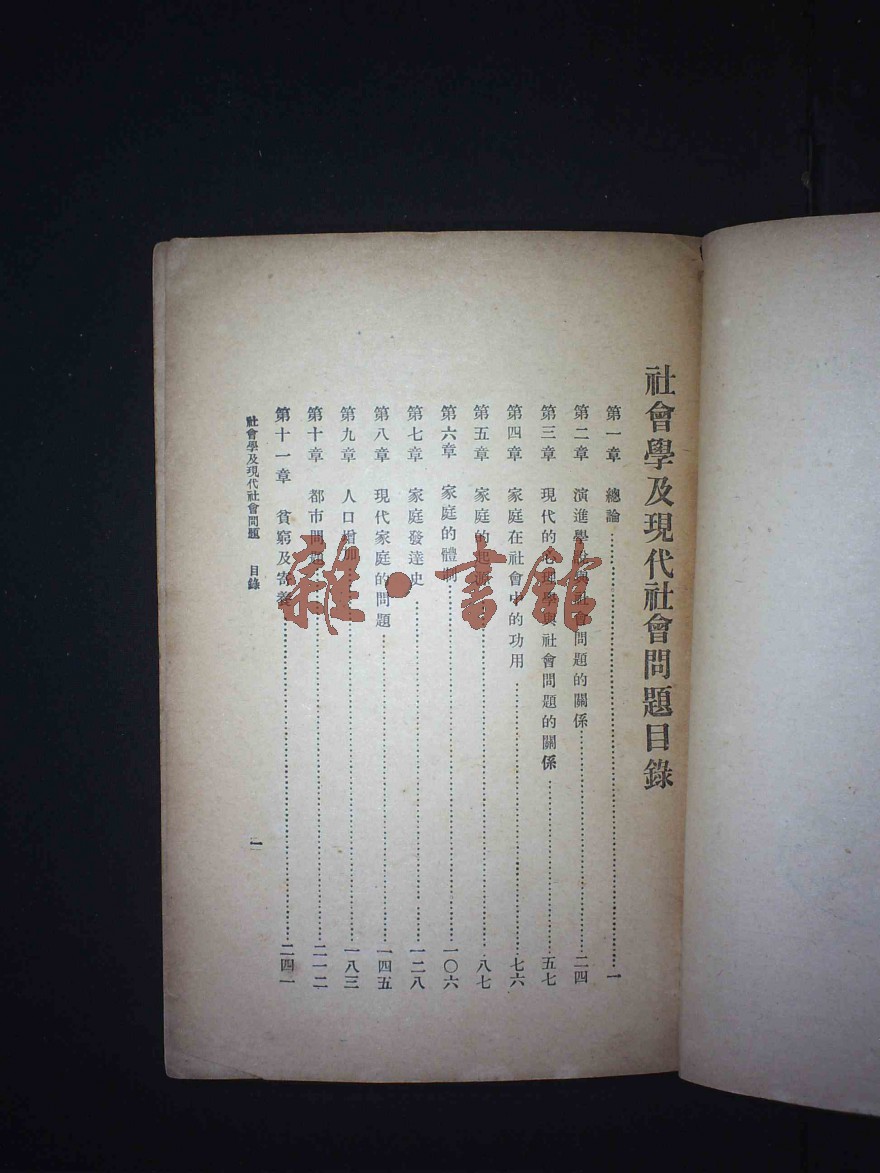 社會學及現代社會問題目錄
第一章 總論……一
第二章 演進學說與社會問題的關係……二四
第三章 現代的心理學與社會問題的關係……五七
第四章 家庭在社會中的功用……七六
第五章 家庭的起源……八七
第六章 家庭的體制……一〇六
第七章 家庭發達史……一二八
第八章 現代家庭的問題……一四五
第九章 人口增加……一八三
第十章 都市問題……二一二
第十一章 貧窮及寄養……二四一
社會學及現代社會問題 目錄
一
雜·書館